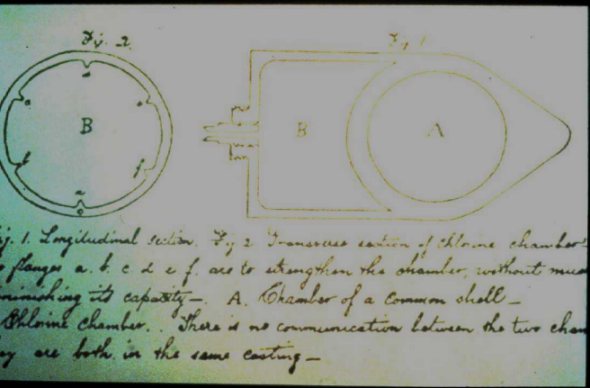 Fig. 2.
Fig. 1
B
B
A
a
f
a
ig. 1. Longitudinal section. Fig 2 Transverse section of Chlorine chamber
flanges a. b. c d e f. are to strengthen the chamber, without muc
minishing its capacity—. A. Chamber of a common shell—
Chlorine chamber.. There is no communication between the two cham
ey are both in the same casting—